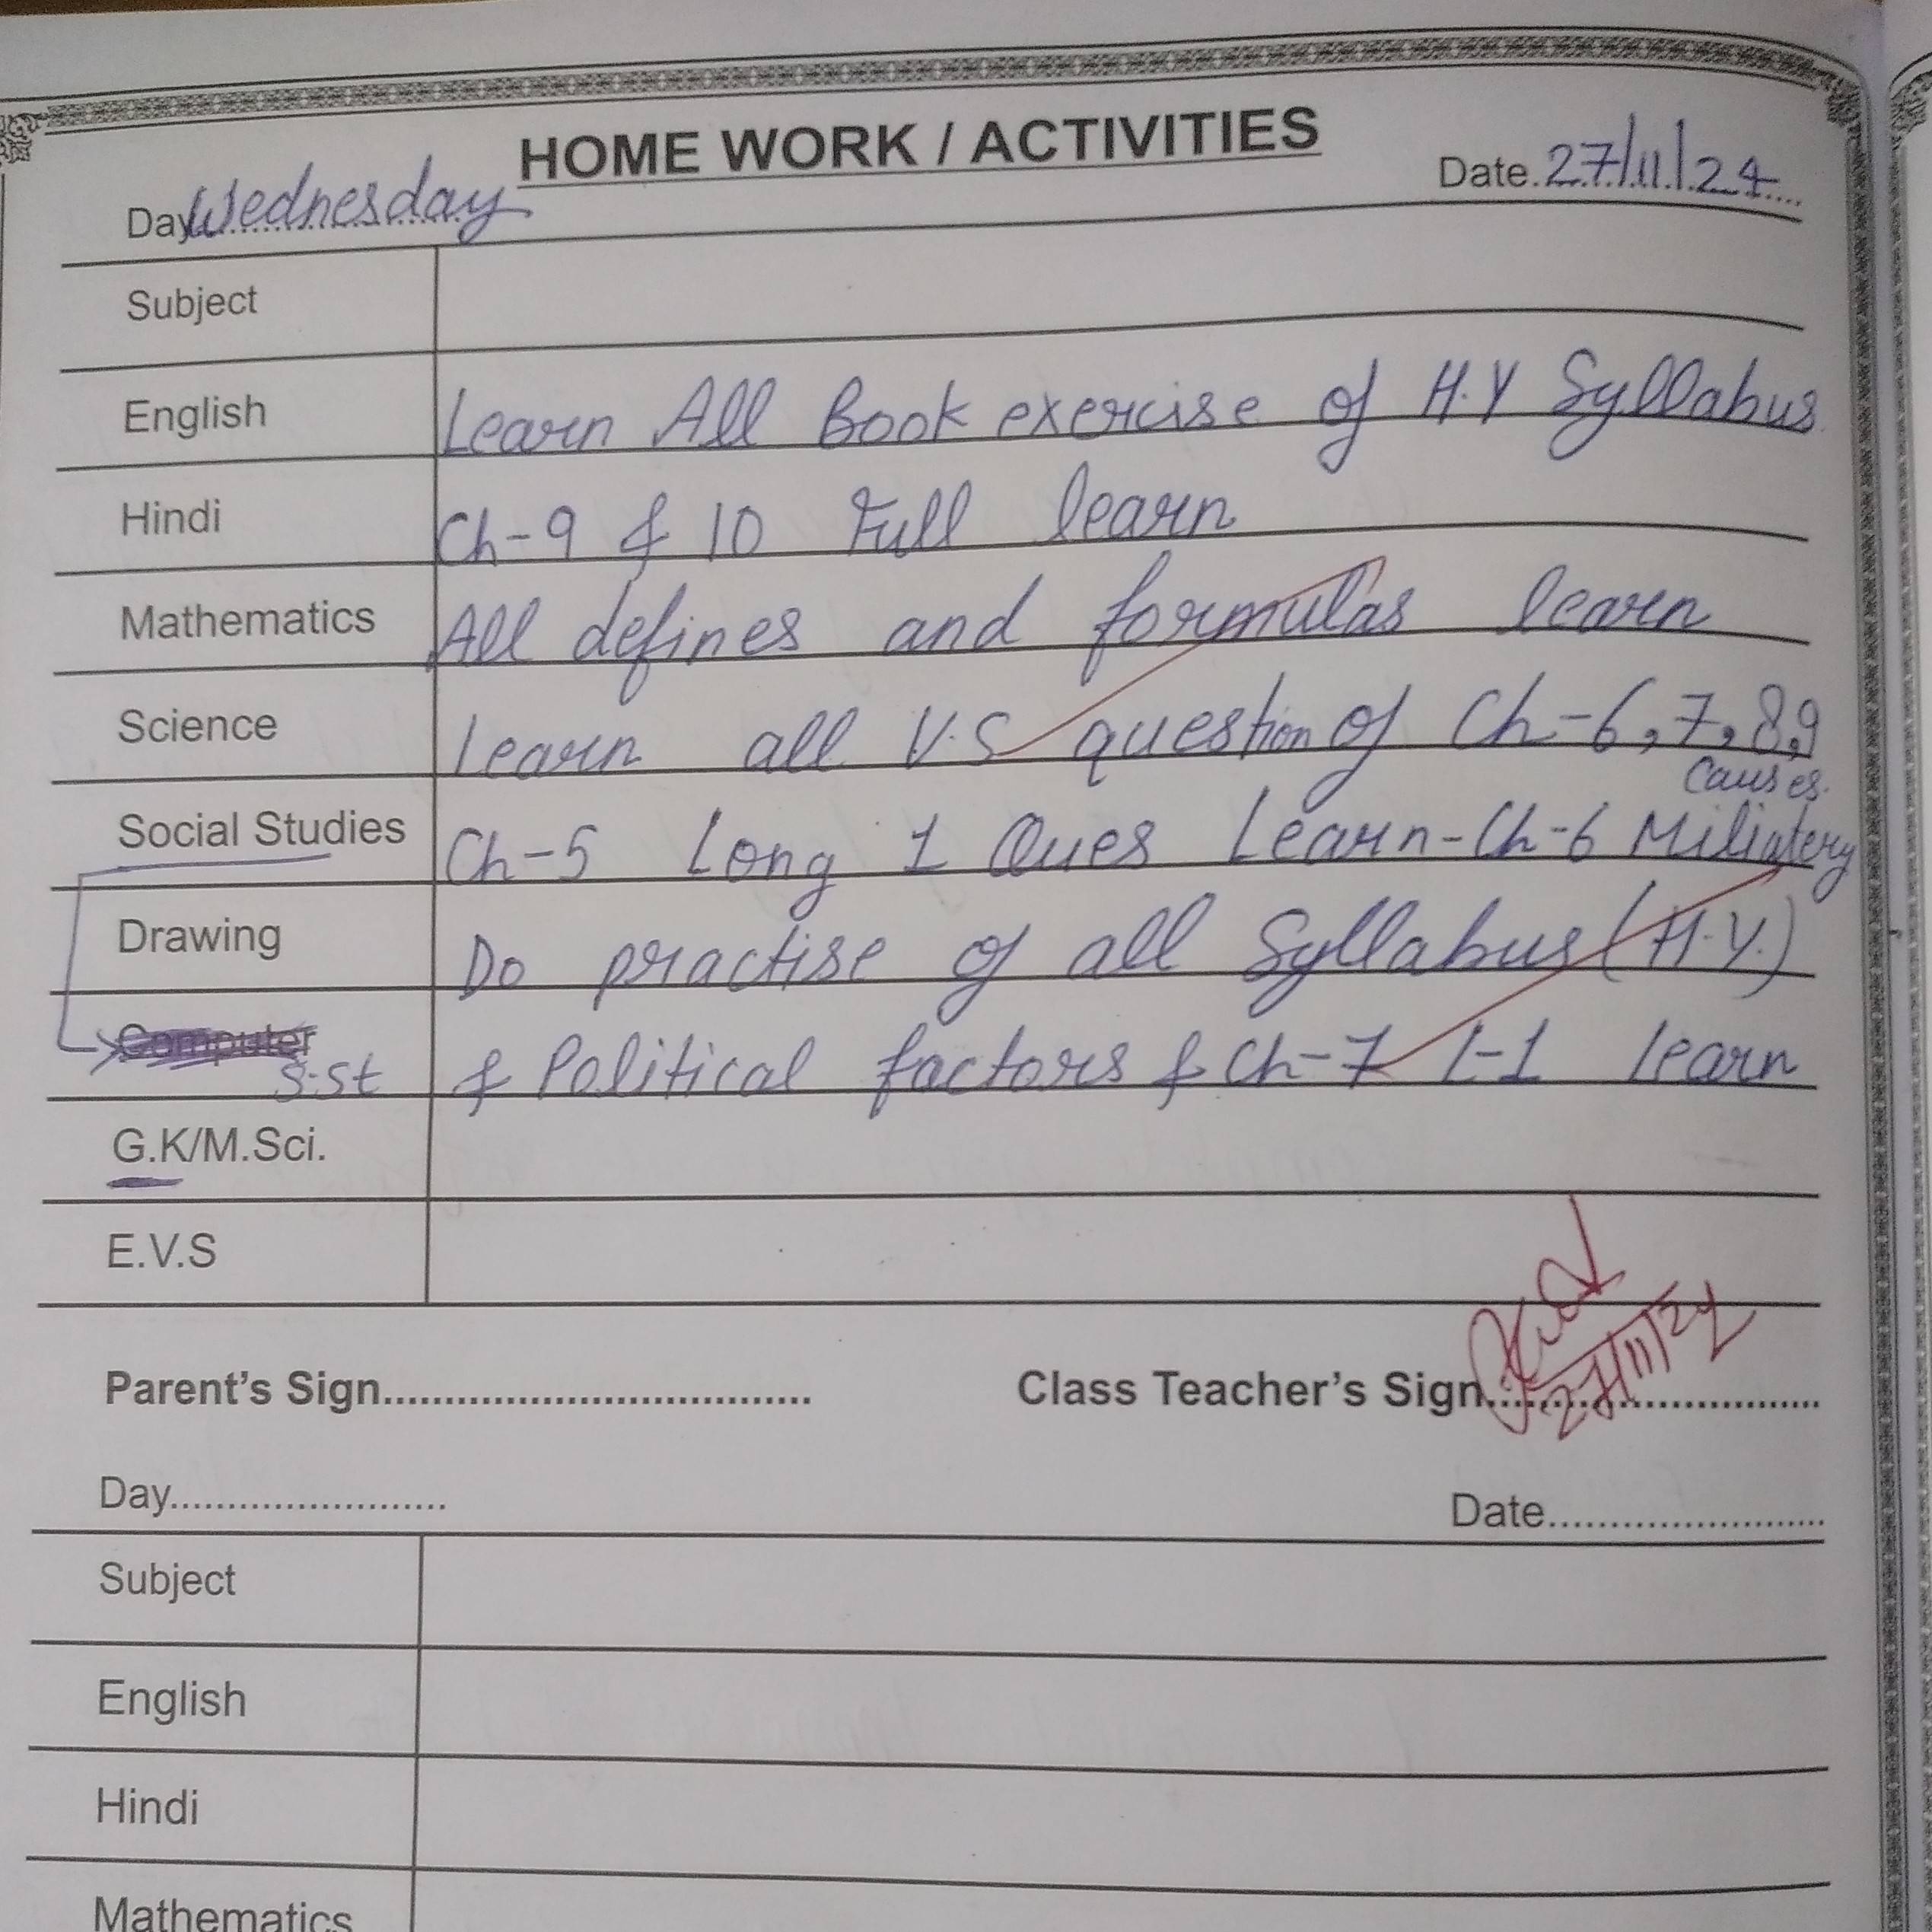 HOME WORK / ACTIVITIES
Day Wednesday Date. 27/11/24
Subject
English Learn All Book exercise of H.Y Syllabus
Hindi Ch-9 & 10 Full learn
Mathematics All defines and formulas learn
Science learn all V.S question of Ch-6,7,8,9
Causes.
Social Studies Ch-5 Long 1 Ques Learn-Ch-6 Miliatery
Drawing Do practise of all Syllabus (H.Y.)
Computer S.St & Political factors & Ch-7 L-1 learn
G.K/M.Sci.
E.V.S
Parent's Sign.................................... Class Teacher's Sign............................
27/11/24
Day........................ Date........................
Subject
English
Hindi
Mathematics